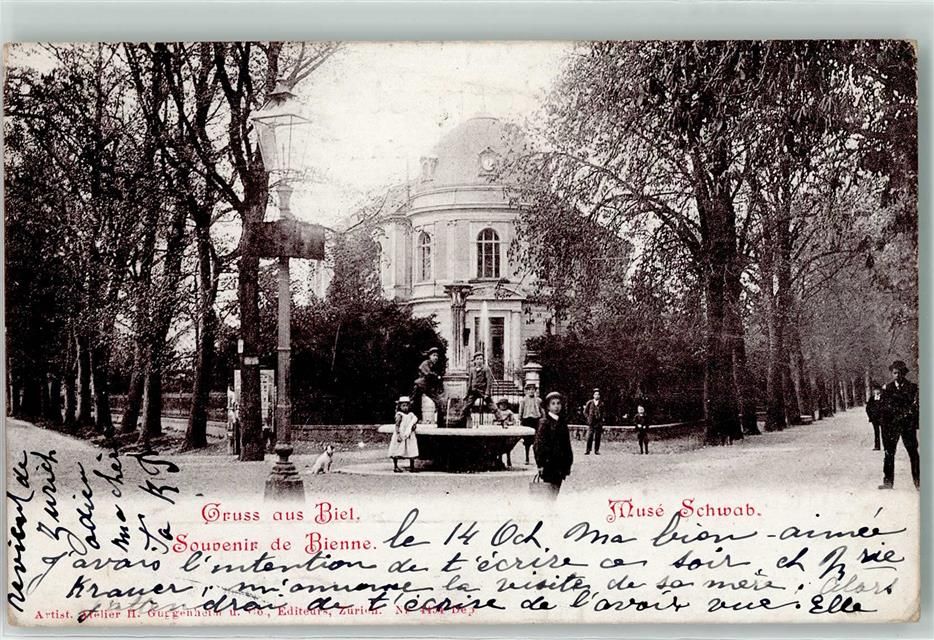 Gruss aus Biel.
Souvenir de Bienne.
Musé Schwab.
le 14 Oct. Ma bien-aimée
J'avais l'intention de t'écrire ce soir, et
Krayer, m'annonce la visite de sa mère; Alors
de t'écrire de l'avoir vue. Elle
revient de
Zurich
adieu
ma chérie
Artist. Atelier H. Guggenheim u. Co., Editeurs, Zürich. No